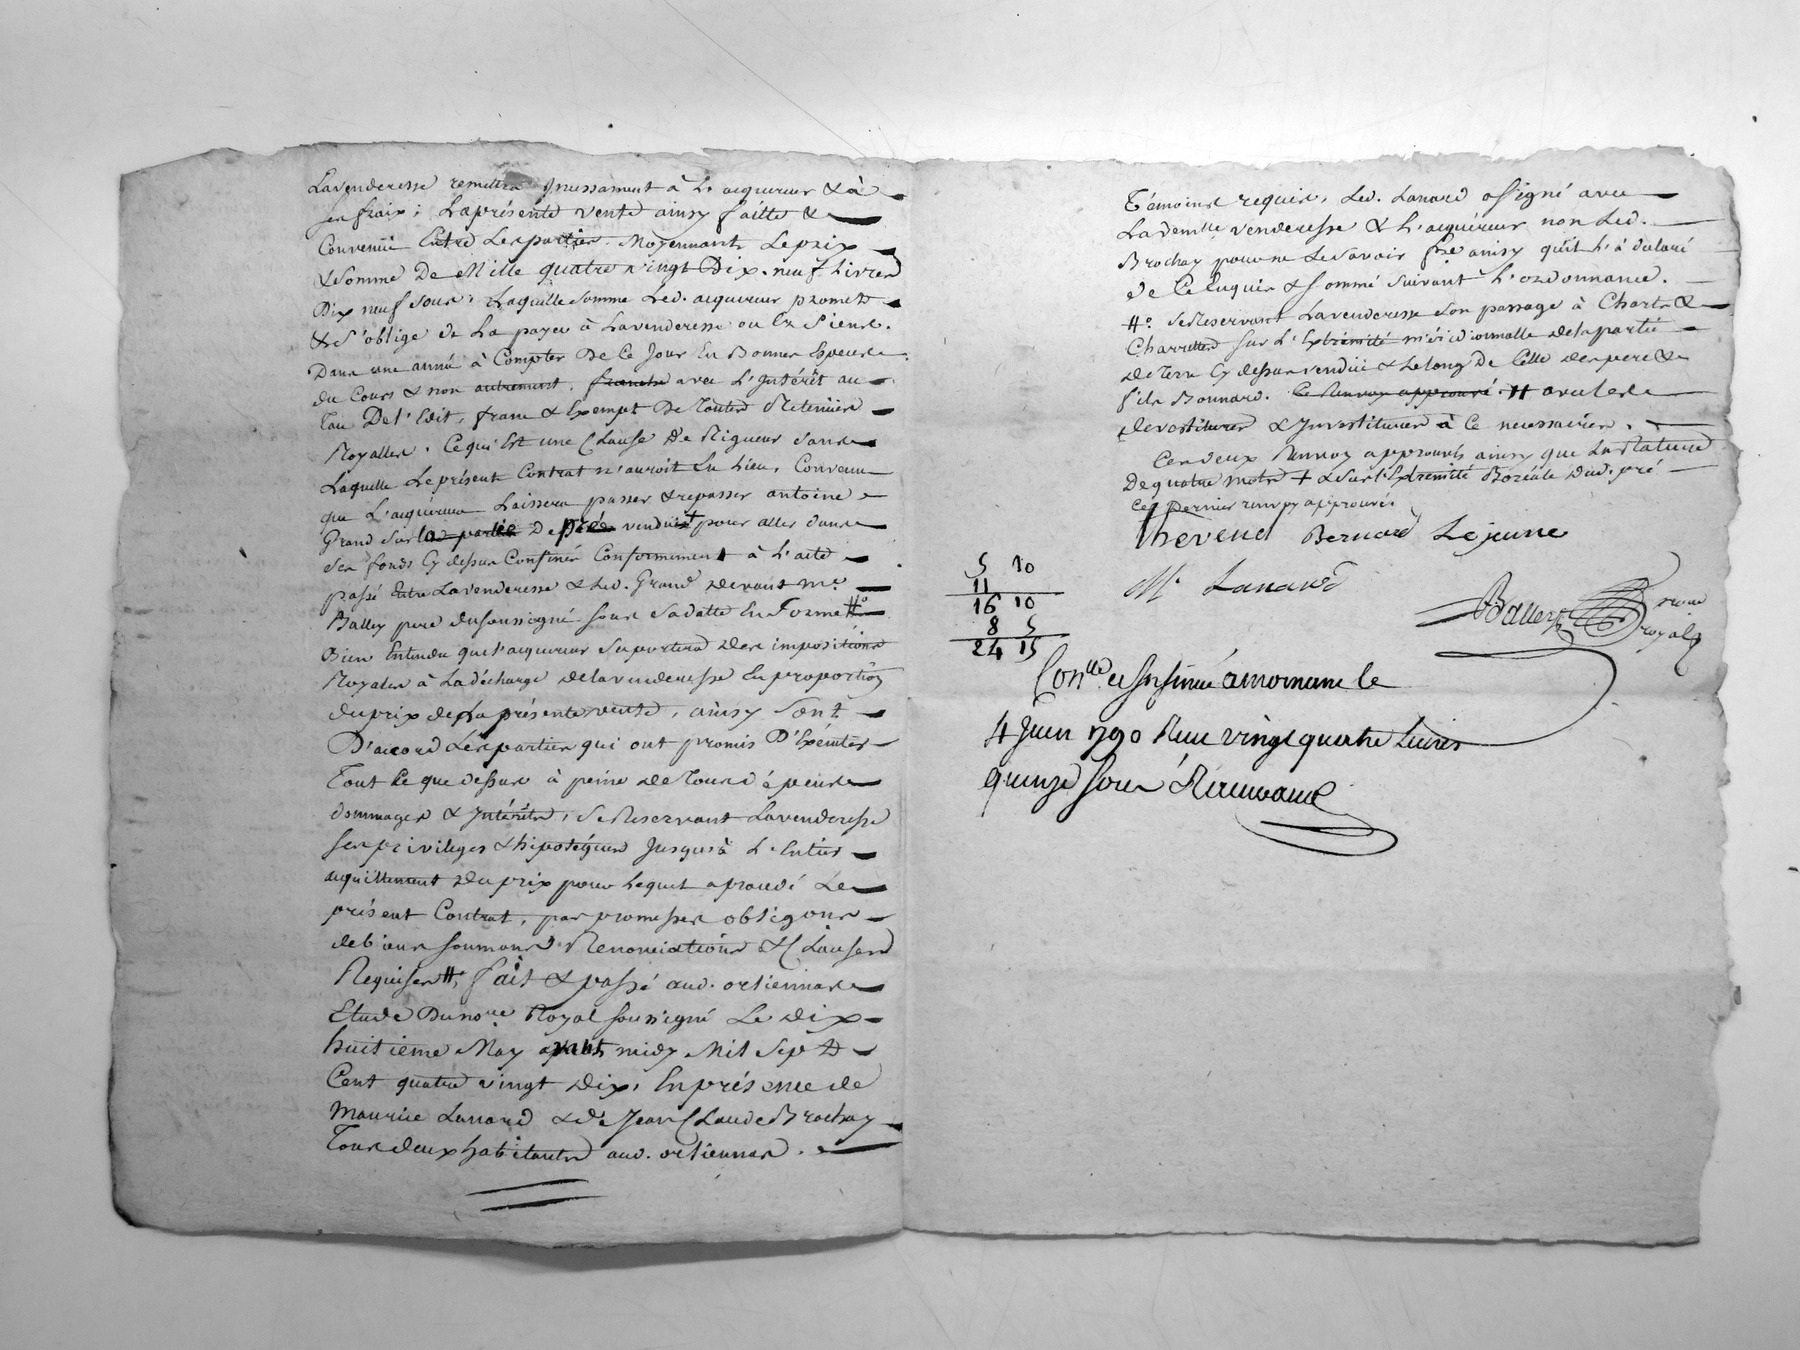 Lavenderesse remettra Incessament à L'acquereur & à
ses fraix; Laprésente vente ainsy faitte &
Convenüe Entre Lesparties. Moyennant Leprix
& somme De Mille quatre vingt Dix-neuf Livres
Dix neuf sous. Laquelle somme Led. acquereur promet
& s'oblige de La payer à Lavenderesse ou Es siens.
Dans une année à Compter De Ce Jour En Bonnes Especes
du Cours & non autrement. avec L'Intérêt au
Taux De l'Edit, franc & Exempt De Toutes Retenües
Royalles. Ce qui Est une Clause De Rigueur sans
Laquelle Leprésent Contrat n'auroit Eu Lieu, Convenu
que L'acquereur Laissera passer & repasser antoine
Grand sur la partie De pred vendue + pour aller dans
ses fonds Cy dessus Confinés Conformement à L'acte
passé Entre Lavenderesse & Led. Grand devant me.
Balley pere dusoussigné sous sadatte En Forme #°
Bien Entendu que l'acquereur Suportera des impositions
Royales à La décharge delavenderesse En proportion
duprix de la présente vente, ainsy sont
D'accord Lesparties qui ont promis D'Exécuter
Tout Ce que dessus à peine de Tous dépens
dommages & Intérêts, se Reservant Lavenderesse
ses privileges & hipotéques Jusqu'à L'Entier
acquittement Du prix pour Lequel a procédé Le
présent Contrat, par promesses obligons
de biens soumons Renonciations & Clauses
Requises #, fait & passé aud. ortiennas
Etude Du noire Royal soussigné Le dix
huitième May après midy Mil Sept
Cent quatre vingt dix, En présence de
Maurice Lanard & de Jean Claude Brochay
Tous deux habitants aud. ortiennas.
Témoins requis, Led. Lanard a signé avec
La demlle venderesse & L'acquéreur non Led.
Brochay pour ne Le savoir fre ainsy qu'il L'à déclaré
de Ce Enquis & sommé suivant L'ordonnance.
#° se Reservant Lavenderesse son passage à Chars &
Charrettes sur L'Extrémité méridionnalle delapartie
de Terre Cy dessus vendüe & Lelong De Celle desperes &
fils Bonnard. Ce Renvoy approuvé. # avec les
devestitures & Investitures à Ce necessaires.
Ces deux Renvoy approuvés ainsy que La Rature
De quatre mots + & sur l'Extremité Boréale Dud. pré
Ce Dernier renvoy approuvé.
Thevend Bernard Lejeune
Mce Lanard
Balley noire
royal
5 10
11
16 10
8 5
24 15
Conlle et Insinué a mornant le
4 Juin 1790 Reçu vingt quatre Livres
quinze sous